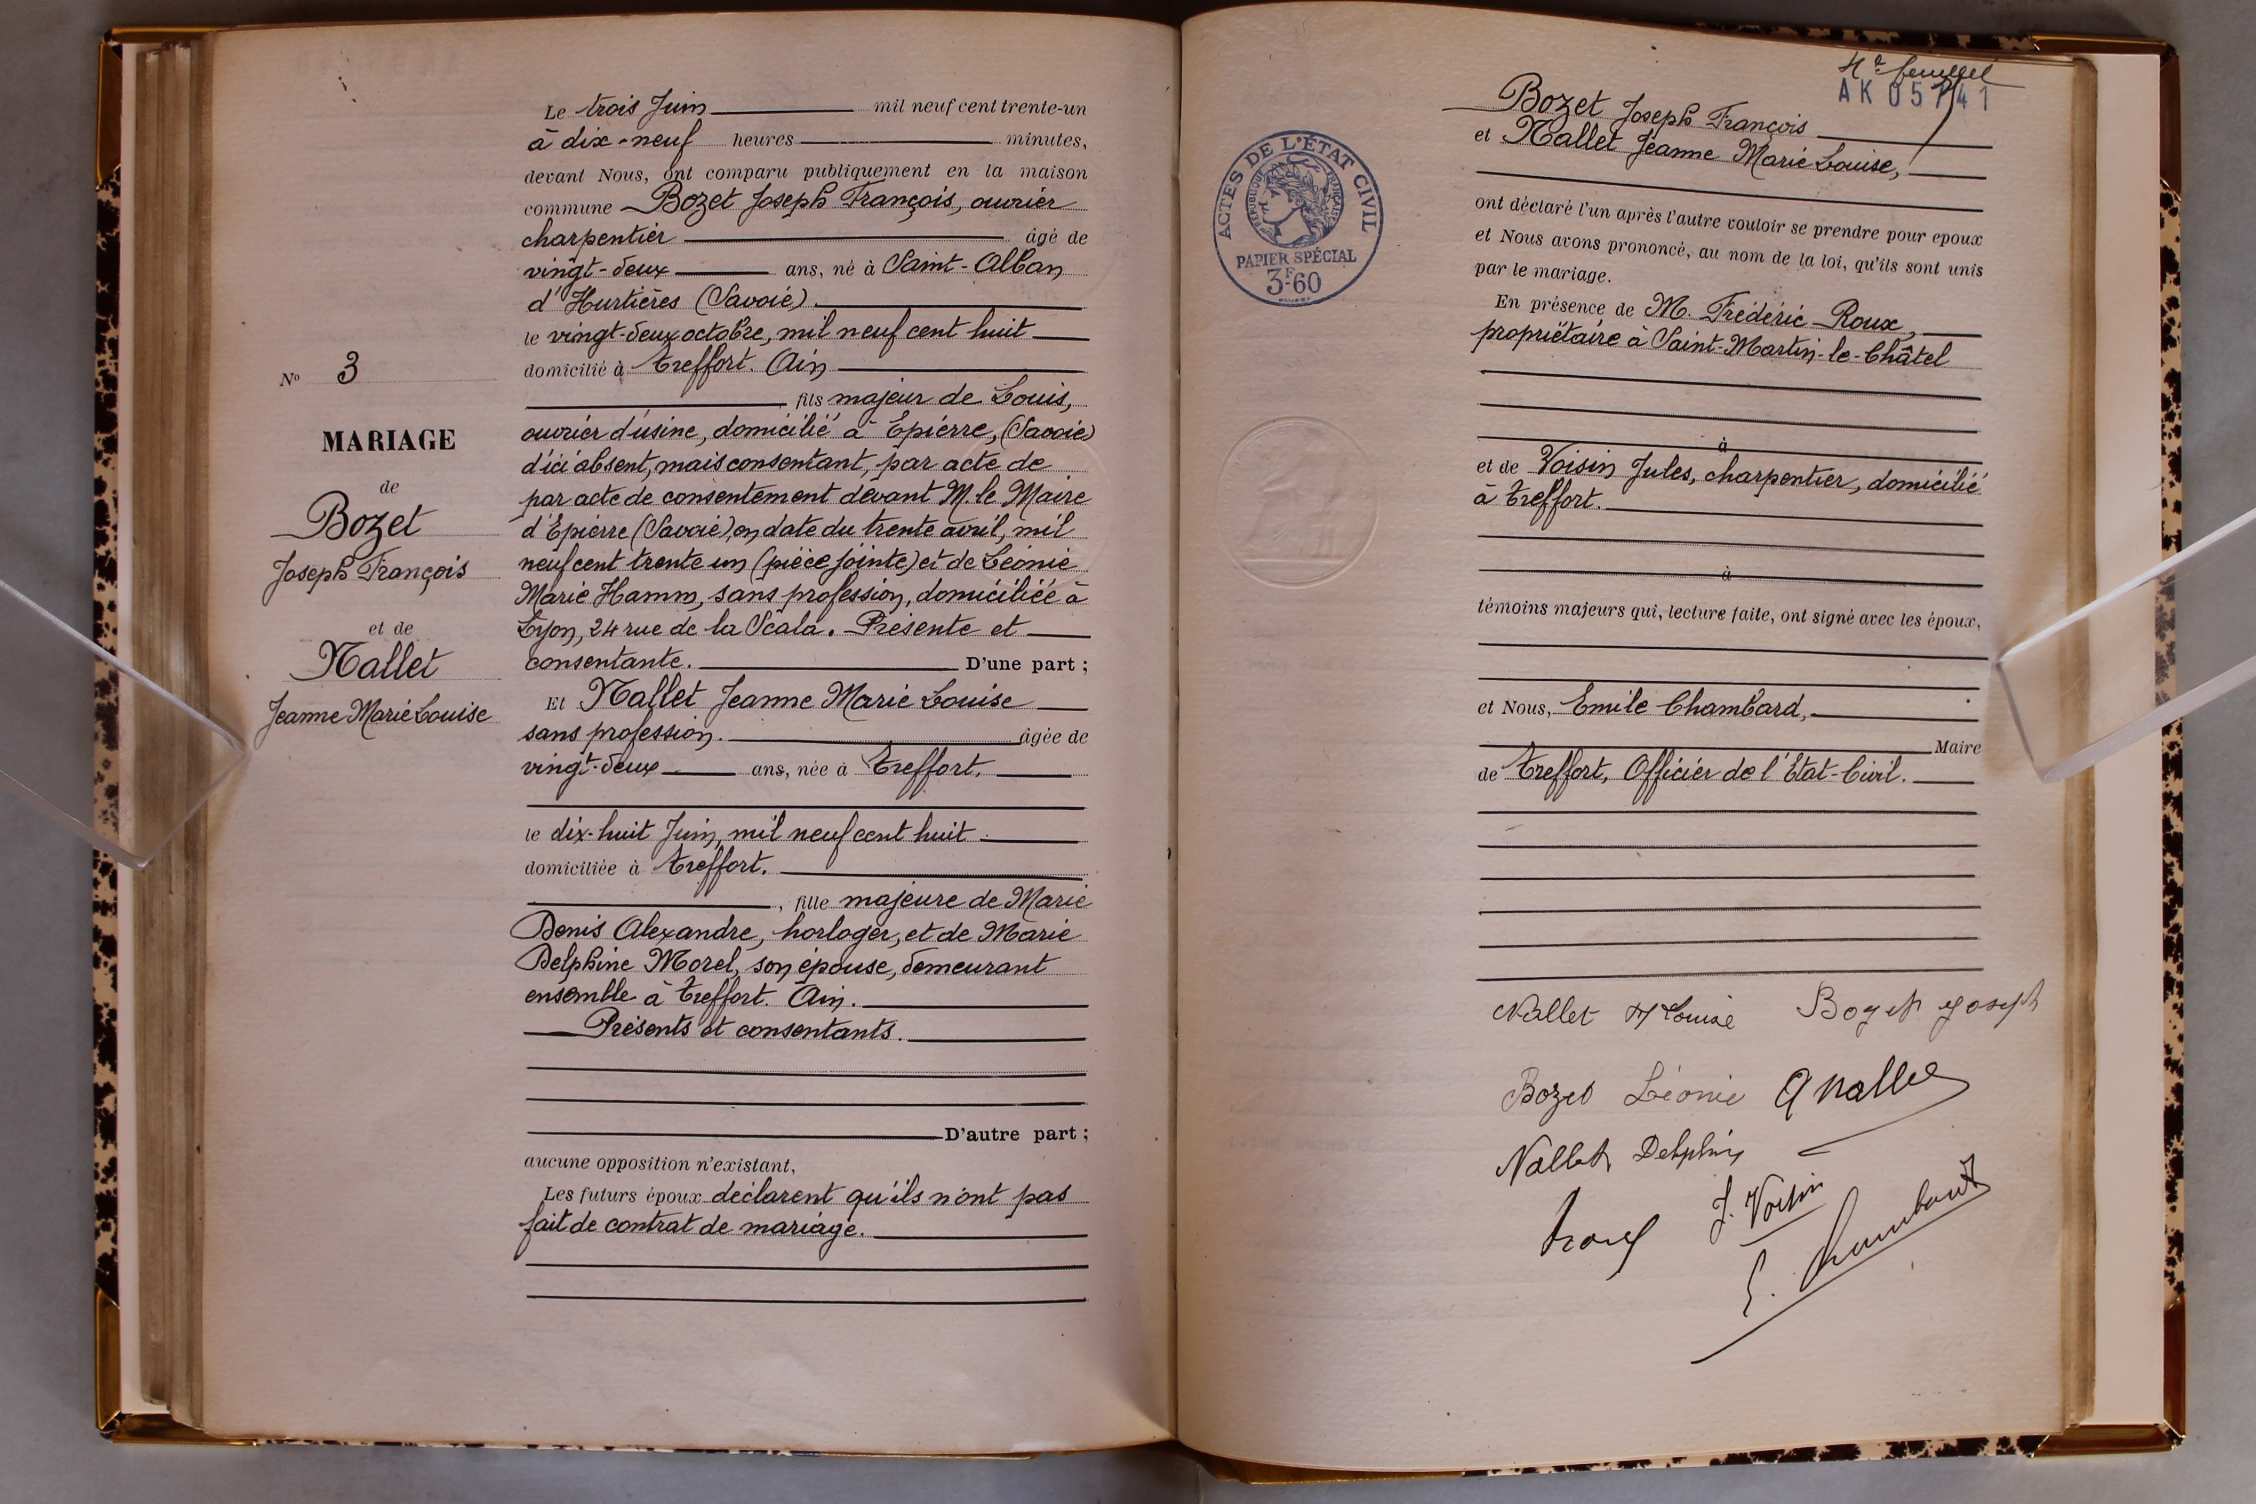 Le trois Juin mil neuf cent trente-un
à dix-neuf heures minutes,
devant Nous, ont comparu publiquement en la maison
commune Bozet Joseph François, ouvrier
charpentier âgé de
vingt-deux ans, né à Saint-Alban
d'Hurtières (Savoie).
le vingt-deux octobre, mil neuf cent huit
domicilié à Treffort. Ain
fils majeur de Louis,
ouvrier d'usine, domicilié à Epierre, (Savoie)
d'ici absent, mais consentant, par acte de
par acte de consentement devant M. le Maire
d'Epierre (Savoie), en date du trente avril, mil
neuf cent trente un (pièce jointe) et de Léonie
Marie Hamm, sans profession, domiciliée à
Lyon, 24 rue de la Scala. Présente et
consentante. D'une part ;
Et Nallet Jeanne Marie Louise
sans profession. âgée de
vingt-deux ans, née à Treffort,
le dix-huit Juin, mil neuf cent huit
domiciliée à Treffort.
, fille majeure de Marie
Denis Alexandre, horloger, et de Marie
Delphine Morel, son épouse, demeurant
ensemble à Treffort. Ain.
Présents et consentants.
D'autre part ;
aucune opposition n'existant,
Les futurs époux déclarent qu'ils n'ont pas
fait de contrat de mariage.
No 3
MARIAGE
de
Bozet
Joseph François
et de
Nallet
Jeanne Marie Louise
4e feuillet
AK 05741
Bozet Joseph François
et Nallet Jeanne Marie Louise,
ont déclaré l'un après l'autre vouloir se prendre pour époux
et Nous avons prononcé, au nom de la loi, qu'ils sont unis
par le mariage.
En présence de M. Frédéric Roux,
propriétaire à Saint-Martin-le-Châtel
à
et de Voisin Jules, charpentier, domicilié
à Treffort.
à
témoins majeurs qui, lecture faite, ont signé avec les époux,
et Nous, Emile Chambard,
Maire
de Treffort, Officier de l'Etat-Civil.
ACTES DE L'ÉTAT CIVIL
RÉPUBLIQUE FRANÇAISE
PAPIER SPÉCIAL
3F.60
Nallet M Louise Bozet Joseph
Bozet Léonie A Nallet
Nallet Delphine
J. Voisin
E. Chambard